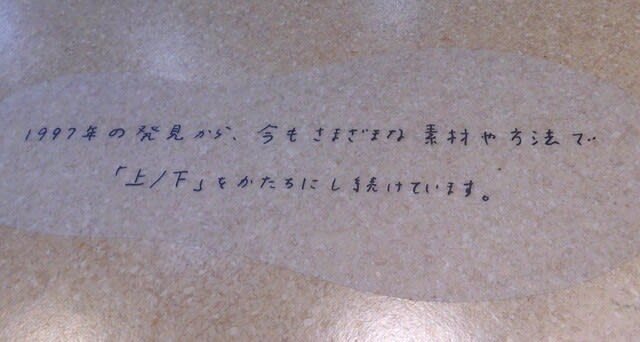 1997年の発見から、今もさまざまな素材や方法で
「上/下」をかたちにし続けています。